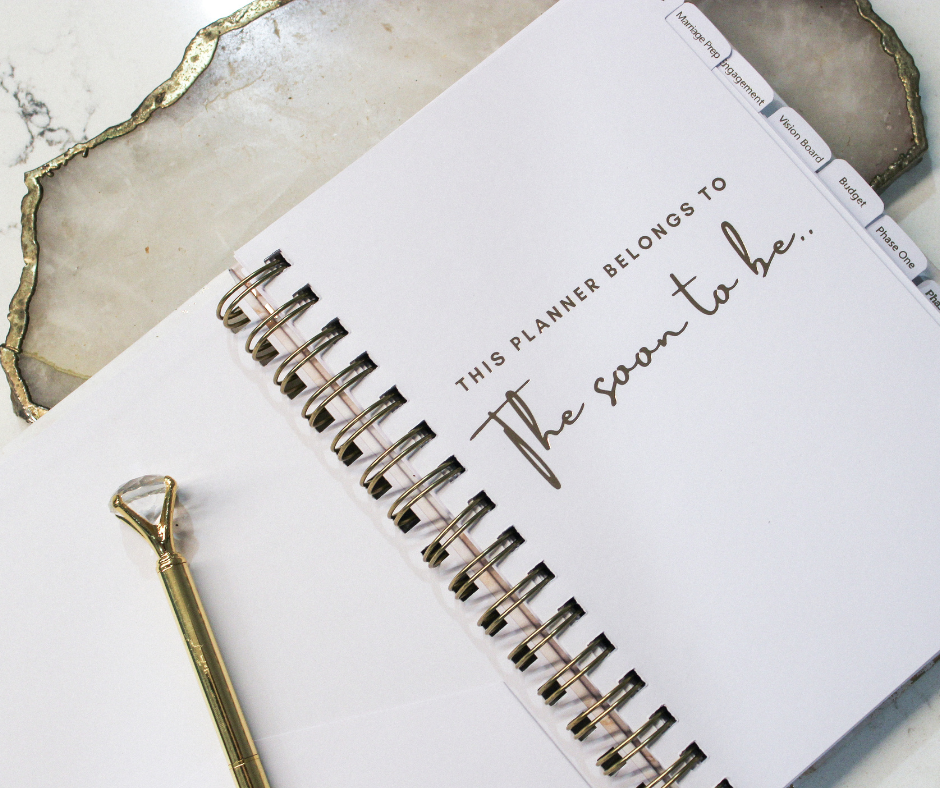 Marriage Prep
Engagement
Vision Board
Budget
Phase One
THIS PLANNER BELONGS TO
The soon to be..